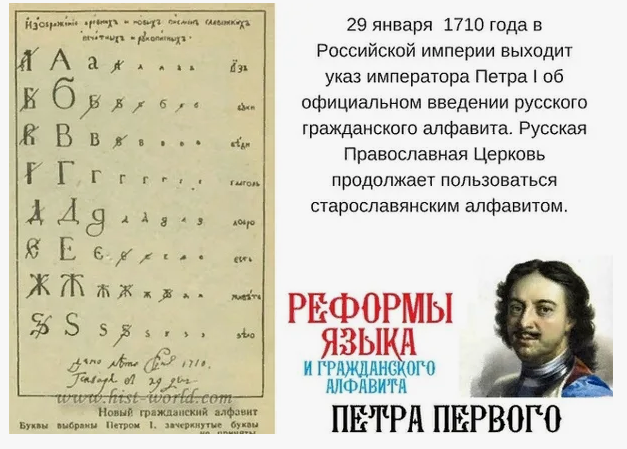 Изображение древних и новых писмен славенских
печатных и рукописных.
А А а а а а а азъ
Б Б Б Б б б б буки
В В в в в в в вѣди
Г Г г г г г г глаголь
Д Д д д д д д добро
Е Е е е е е е есть
Ж Ж ж ж ж ж ж живѣте
Ѕ Ѕ ѕ ѕ ѕ ѕ ѕ ѕѣло
дано лѣта 1710.
Генваря въ 29 день
www.hist-world.com
Новый гражданский алфавит
Буквы выбраны Петром I, зачеркнутые буквы
не приняты
29 января 1710 года в
Российской империи выходит
указ императора Петра I об
официальном введении русского
гражданского алфавита. Русская
Православная Церковь
продолжает пользоваться
старославянским алфавитом.
РЕФОРМЫ
ЯЗЫКА
И ГРАЖДАНСКОГО
АЛФАВИТА
ПЕТРА ПЕРВОГО